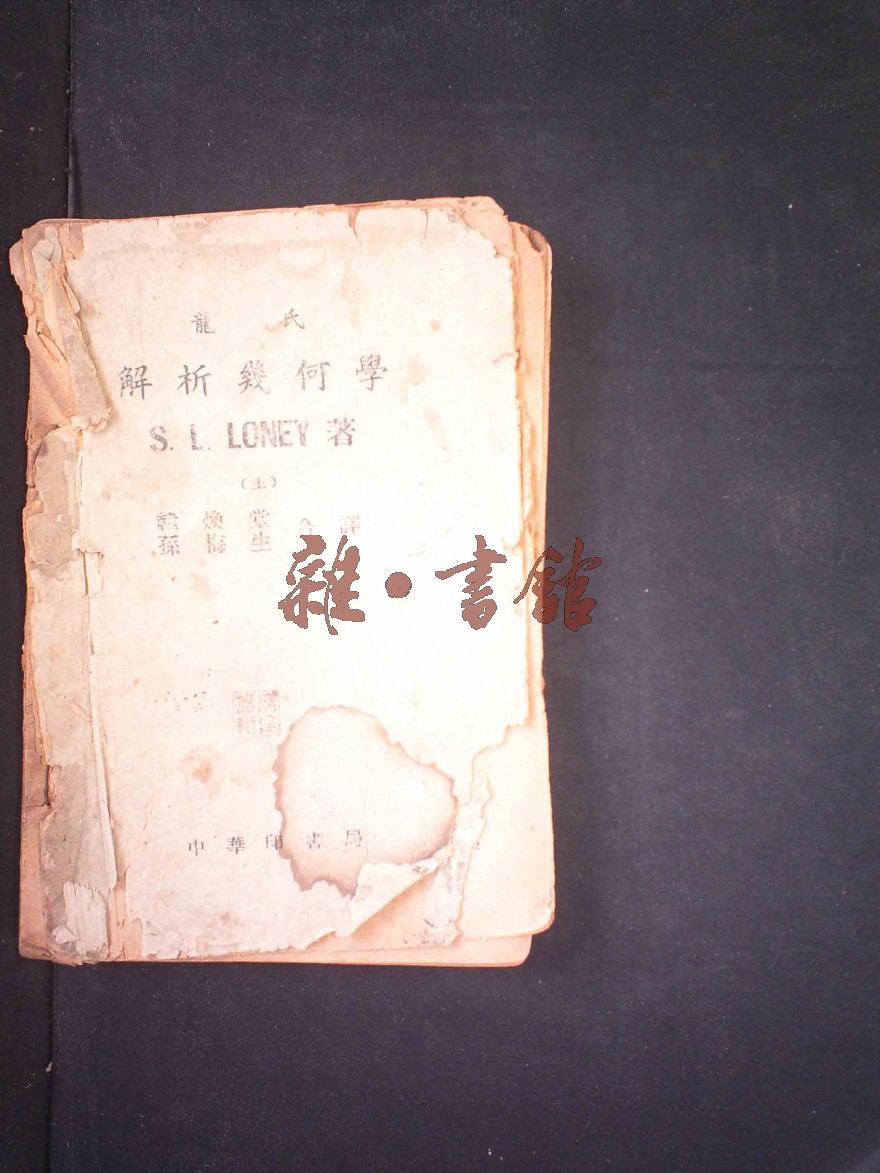 龍氏
解析幾何學
S. L. LONEY 著
韓煥堂
孫梅生
合譯
雜·書館
中華印書局